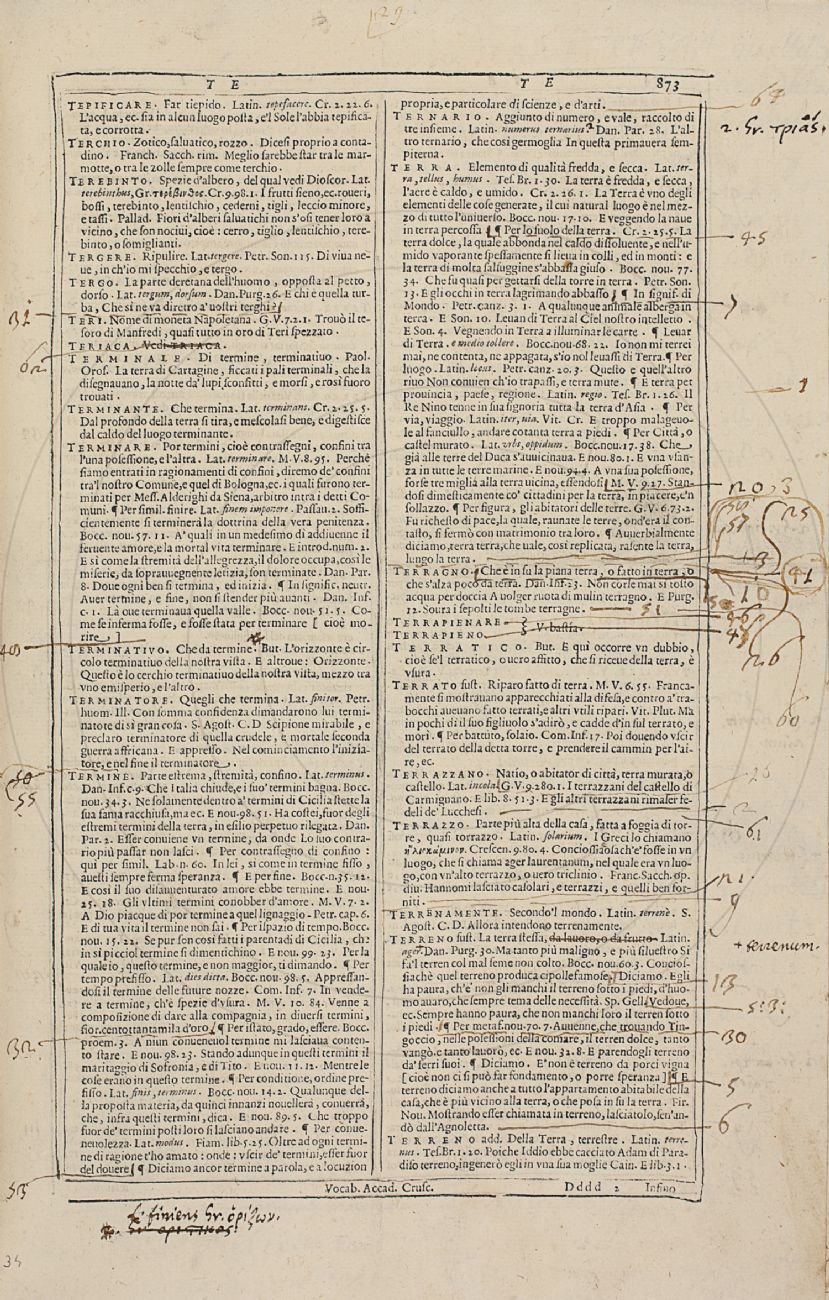 29
T E
T E 873
TEPIFICARE. Far tiepido. Latin. tepefacere. Cr. 2. 22. 6.
L'acqua, ec. sia in alcun luogo posta, e'l Sole l'abbia tepifica-
ta, e corrotta.
TERCHIO. Zotico, saluatico, rozzo. Dicesi proprio a conta-
dino. Franch. Sacch. rim. Meglio sarebbe star tra le mar-
motte, o tra le zolle sempre come terchio.
TEREBINTO. Spezie d'albero, del qual vedi Dioscor. Lat.
terebinthus, Gr. τερέβινθος. Cr. 9. 98. 1. I frutti sieno, ec. roueri,
bossi, terebinto, lentischio, cederni, tigli, leccio minore,
e tassi. Pallad. Fiori d'alberi saluatichi non s'osi tener loro a
vicino, che son nociui, cioè: cerro, tiglio, lentischio, tere-
binto, o somiglianti.
TERGERE. Ripulire. Lat. tergere. Petr. Son. 115. Di viua ne-
ue, in ch'io mi specchio, e tergo.
TERGO. La parte deretana dell'huomo, opposta al petto,
dorso. Lat. tergum, dorsum. Dan. Purg. 26. E chi è quella tur-
ba, Che sì ne va diretro a' vostri terghi?
TERI. Nome di moneta Napoletana. G. V. 7. 2. 1. Trouò il te-
soro di Manfredi, quasi tutto in oro di Teri spezzato.
TERIACA. Vedi TRIACA.
TERMINALE. Di termine, terminatiuo. Paol.
Oros. La terra di Cartagine, ficcati i pali terminali, che la
disegnauano, la notte da' lupi sconfitti, e morsi, e rosi fuoro
trouati.
TERMINANTE. Che termina. Lat. terminans. Cr. 2. 25. 5.
Dal profondo della terra si tira, e mescolasi bene, e digestisce
dal caldo del luogo terminante.
TERMINARE. Por termini, cioè contrassegni, confini tra
l'una posessione, e l'altra. Lat. terminare. M. V. 8. 95. Perchè
siamo entrati in ragionamenti di confini, diremo de' confini
tra'l nostro Comune, e quel di Bologna, ec. i quali furono ter-
minati per Mess. Alderighi da Siena, arbitro intra i detti Co-
muni. ¶ Per simil. finire. Lat. finem imponere. Passau. 2. Suffi-
cientemente si terminerà la dottrina della vera penitenza.
Bocc. nou. 57. 11. A' quali in un medesimo dì addiuenne il
feruente amore, e la mortal vita terminare. E introd. num. 2.
E sì come la stremità dell'allegrezza, il dolore occupa, così le
miserie, da soprauuegnente letizia, son terminate. Dan. Par.
8. Doue ogni ben si termina, ed inizia. ¶ In signific. neutr.
Auer termine, e fine, non si stender più auanti. Dan. Inf.
c. 1. Là oue terminaua quella valle. Bocc. nou. 51. 5. Co-
me se inferma fosse, e fosse stata per terminare [ cioè mo-
rire ]
TERMINATIVO. Che da termine. But. L'orizzonte è cir-
colo terminatiuo della nostra vista. E altroue: Orizzonte.
Questo è lo cerchio terminatiuo della nostra vista, mezzo tra
vno emisperio, e l'altro.
TERMINATORE. Quegli che termina. Lat. finitor. Petr.
huom. Ill. Con somma confidenza dimandarono lui termi-
natore di sì gran cosa. S. Agost. C. D Scipione mirabile, e
preclaro terminatore di quella crudele, e mortale seconda
guerra affricana. E appresso. Nel cominciamento l'inizia-
tore, e nel fine il terminatore.
TERMINE. Parte estrema, stremità, confino. Lat. terminus.
Dan. Inf. c. 9. Che Italia chiude, e i suo' termini bagna. Bocc.
nou. 34. 3. Ne solamente dentro a' termini di Cicilia stette la
sua fama racchiusa, ma ec. E nou. 98. 51. Ha costei, fuor degli
estremi termini della terra, in esilio perpetuo rilegata. Dan.
Par. 2. Esser conuiene vn termine, da onde Lo suo contra-
rio più passar non lasci. ¶ Per contrassegno di confino:
qui per simil. Lab. n. 60. In lei, sì come in termine fisso,
auesti sempre ferma speranza. ¶ E per fine. Bocc. n. 35. 12.
E così il suo disauuenturato amore ebbe termine. E nou.
25. 18. Gli vltimi termini conobber d'amore. M. V. 7. 2.
A Dio piacque di por termine a quel lignaggio. Petr. cap. 6.
E di tua vita il termine non sai. ¶ Per ispazio di tempo. Bocc.
nou. 15. 22. Se pur son così fatti i parentadi di Cicilia, che
in sì picciol termine si dimentichino. E nou. 99. 23. Per la
quale io, questo termine, e non maggior, ti dimando. ¶ Per
tempo prefisso. Lat. dies dicta. Bocc. nou. 98. 5. Appressan-
dosi il termine delle future nozze. Com. Inf. 7. In vende-
re a termine, ch'è spezie d'vsura. M. V. 10. 84. Venne a
composizione di dare alla compagnia, in diuersi termini,
fior. centottantamila d'oro. ¶ Per istato, grado, essere. Bocc.
proem. 3. A niun conueneuol termine mi lasciaua conten-
to stare. E nou. 98. 23. Stando adunque in questi termini il
maritaggio di Sofronia, e di Tito. E nou. 11. 12. Mentre le
cose erano in questo termine. ¶ Per condizione, ordine pre-
fisso. Lat. finis, terminus. Bocc. nou. 14. 2. Qualunque del-
la proposta materia, da quinci innanzi nouellerà, conuerrà,
che, infra questi termini, dica. E nou. 89. 5. Che troppo
fuor de' termini posti loro si lasciano andare. ¶ Per conue-
neuolezza. Lat. modus. Fiam. lib. 5. 25. Oltre ad ogni termi-
ne di ragione t'ho amato: onde: vscir de' termini, esser fuor
del douere. ¶ Diciamo ancor termine a parola, e a locuzion
propria, e particolare di scienze, e d'arti.
TERNARIO. Aggiunto di numero, e vale, raccolto di
tre insieme. Latin. numerus ternarius. Dan. Par. 28. L'al-
tro ternario, che così germoglia In questa primauera sem-
piterna.
TERRA. Elemento di qualità fredda, e secca. Lat. ter-
ra, tellus, humus. Tes. Br. 1. 30. La terra è fredda, e secca,
l'aere è caldo, e umido. Cr. 2. 26. 1. La Terra è vno degli
elementi delle cose generate, il cui natural luogo è nel mez-
zo di tutto l'vniuerso. Bocc. nou. 17. 10. E veggendo la naue
in terra percossa. ¶ Per lo suolo della terra. Cr. 2. 25. 5. La
terra dolce, la quale abbonda nel caldo dissoluente, e nell'u-
mido vaporante spessamente si lieua in colli, ed in monti: e
la terra di molta salsuggine s'abbassa giuso. Bocc. nou. 77.
34. Che su quasi per gettarsi della torre in terra. Petr. Son.
13. E gli occhi in terra lagrimando abbasso. ¶ In signif. di
Mondo. Petr. canz. 3. 1. A qualunque animale alberga in
terra. E Son. 10. Leuan di Terra al Ciel nostro intelletto.
E Son. 4. Vegnendo in Terra a illuminar le carte. ¶ Leuar
di Terra. e medio tollere. Bocc. nou. 68. 22. Io non mi terrei
mai, ne contenta, ne appagata, s'io nol leuassi di Terra. ¶ Per
luogo. Latin. locus. Petr. canz. 20. 3. Questo e quell'altro
riuo Non conuien ch'io trapassi, e terra mute. ¶ E terra per
prouincia, paese, regione. Latin. regio. Tes. Br. 1. 26. Il
Re Nino tenne in sua signoria tutta la terra d'Asia. ¶ Per
via, viaggio. Latin. iter, via. Vit. Cr. E troppo malageuo-
le al fanciullo, andare cotanta terra a piedi. ¶ Per Città, o
castel murato. Lat. vrbs, oppidum. Bocc. nou. 17. 38. Che
già alle terre del Duca s'auuicinaua. E nou. 80. 1. E vna vsan-
za in tutte le terre marine. E nou. 94. 4. A vna sua posessione,
forse tre miglia alla terra uicina, essendosi. M. V. 9. 27. Stan-
dosi dimesticamente co' cittadini per la terra, in piacere, e'n
sollazzo. ¶ Per figura, gli abitatori delle terre. G. V. 6. 73. 2.
Fu richesto di pace, la quale, raunate le terre, ond'era il con-
tasto, si fermò con matrimonio tra loro. ¶ Auuerbialmente
diciamo, terra terra, che uale, così replicata, rasente la terra,
lungo la terra.
TERRAGNO. Che è in su la piana terra, o fatto in terra, o
che s'alza poco da terra. Dan. Inf. 23. Non corse mai sì tosto
acqua per doccia A uolger ruota di mulin terragno. E Purg.
12. Soura i sepolti le tombe terragne.
TERRAPIENARE
TERRAPIENO } V. bastia.
TERRATICO. But. E quì occorre vn dubbio,
cioè se'l terratico, o uero affitto, che si riceue della terra, è
vsura.
TERRATO sust. Riparo fatto di terra. M. V. 6. 55. Franca-
mente si mostrauano apparecchiati alla difesa, e contro a' tra-
bocchi aueuano fatto terrati, e altri vtili ripari. Vit. Plut. Ma
in pochi dì il suo figliuolo s'adirò, e cadde d'in sul terrato, e
morì. ¶ Per battuto, solaio. Com. Inf. 17. Poi douendo vscir
del terrato della detta torre, e prendere il cammin per l'ai-
re, ec.
TERRAZZANO. Natio, o abitator di città, terra murata, o
castello. Lat. incola. G. V. 9. 280. 1. I terrazzani del castello di
Carmignano. E lib. 8. 51. 3. E gli altri terrazzani rimaser fe-
deli de' Lucchesi.
TERRAZZO. Parte più alta della casa, fatta a foggia di tor-
re, quasi torrazzo. Latin. solarium. I Greci lo chiamano
Crescen. 9. 80. 4. Conciossiacosach'e' fosse in vn
luogo, che si chiama ager laurentanum, nel quale era vn luo-
go, con vn'alto terrazzo, o uero triclinio. Franc. Sacch. op.
diu. Hannomi lasciato casolari, e terrazzi, e quelli ben for-
niti.
TERRENAMENTE. Secondo'l mondo. Latin. terrenè. S.
Agost. C. D. Allora intendono terrenamente.
TERRENO sust. La terra stessa, da lauoro, o da frutto. Latin.
ager. Dan. Purg. 30. Ma tanto più maligno, e più siluestro Si
fa'l terren col mal seme non colto. Bocc. nou. 60. 3. Concios-
siachè quel terreno produca cipolle famose. ¶ Diciamo. Egli
ha paura, ch'e' non gli manchi il terreno sotto i piedi, d'huo-
mo auaro, che sempre tema delle necessità. Sp. Gell. Vedoue,
ec. Sempre hanno paura, che non manchi loro il terren sotto
i piedi. ¶ Per metaf. nou. 70. 7. Auuenne, che trouando Tin-
goccio, nelle posessioni della comare, il terren dolce, tanto
vangò, e tanto lauorò, ec. E nou. 32. 8. E parendogli terreno
da' ferri suoi. ¶ Diciamo. E' non è terreno da porci vigna
[ cioè non ci si può far fondamento, o porre speranza ] ¶ E
terreno diciamo anche a tutto l'appartamento abitabile della
casa, che è più vicino alla terra, o che posa in su la terra. Fir.
Nou. Mostrando esser chiamata in terreno, lasciatolo, sen'an-
dò dall'Agnoletta.
TERRENO add. Della Terra, terrestre. Latin. terre-
nus. Tes. Br. 1. 20. Poiche Iddio ebbe cacciato Adam di Para-
diso terreno, ingenerò egli in vna sua moglie Cain. E lib. 3. 1.
Vocab. Accad. Crusc. Dddd 2 Infino
31
62
55
32
53
64
2. Gr. τριάς.
45
1
no. 3
n5
41
10
51
46
n.6
60
2
61
n 1.
9
+ terrenum.
13
53:
30
5
6
L. finiens Gr. ὁρίζων.
34